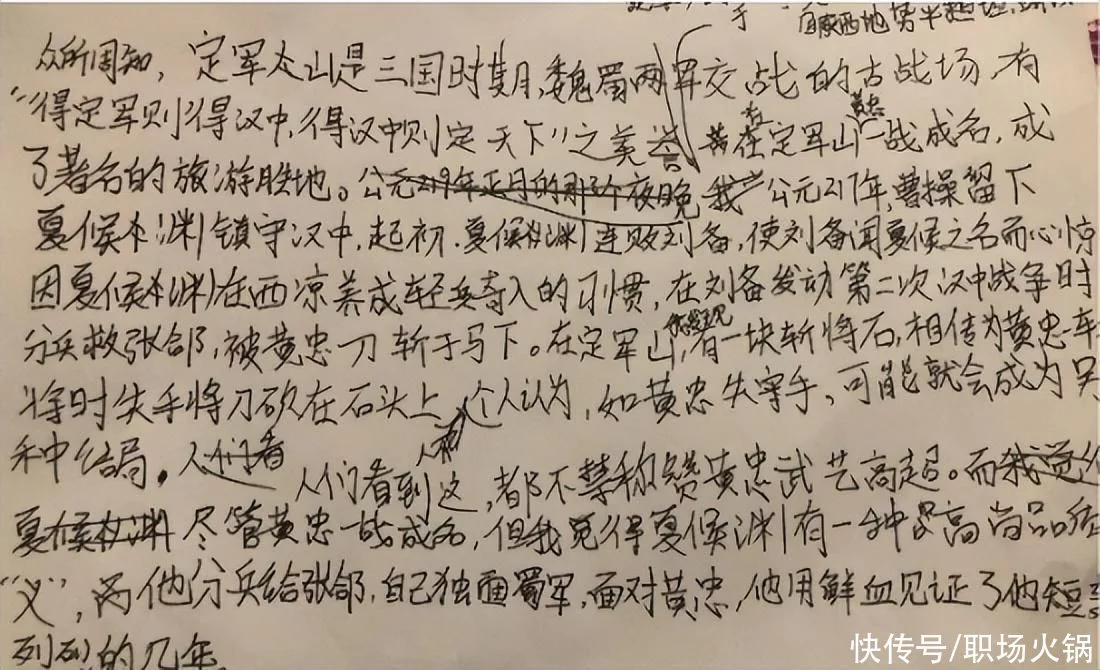 于 陕西地势平
众所周知，定军山是三国时期，魏蜀两军交战的古战场，有
“得定军则得汉中，得汉中则定天下”之美誉 黄忠在定军山一战成名，成
了著名的旅游胜地。公元219年正月的那个夜晚 我 公元217年，曹操留下
夏候渊镇守汉中，起初，夏候渊连败刘备，使刘备闻夏候之名而心惊
因夏候渊在西凉养成轻兵奇入的习惯，在刘备发动第二次汉中战争时
分兵救张郃，被黄忠一刀斩于马下。在定军山，有一块斩将石，相传为黄忠
将时失手将刀砍在石头上，个人认为，如黄忠失手，可能就会成为另
种结局。人们看
人们看到这，都不禁称赞黄忠武艺高超。而我觉
夏候渊 尽管黄忠一战成名，但我觉得夏候渊有一种高尚品
“义”，而他分兵给张郃，自己独面蜀军，面对黄忠，他用鲜血见证了他短
列列的几年
快传号/职场火锅